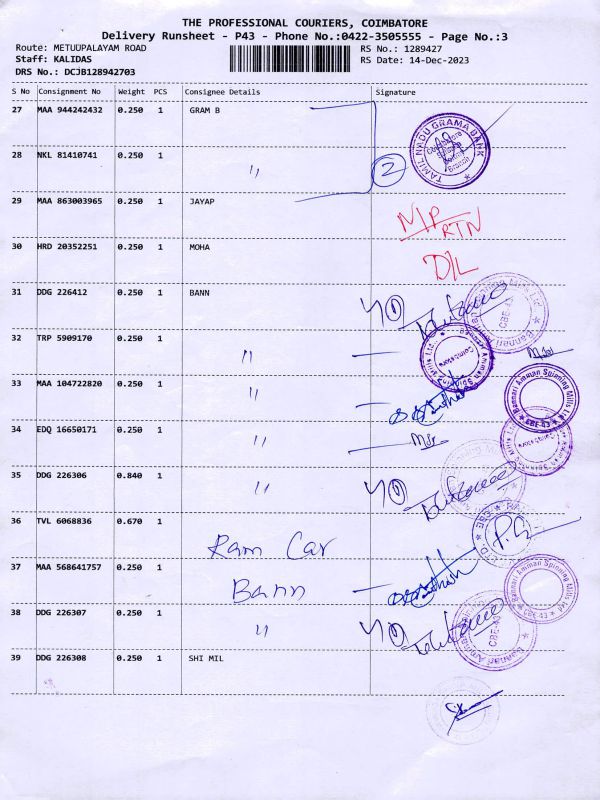 THE PROFESSIONAL COURIERS, COIMBATORE
Delivery Runsheet - P43 - Phone No.:0422-3505555 - Page No.:3
Route: METUUPALAYAM ROAD
RS No.: 1289427
Staff: KALIDAS
RS Date: 14-Dec-2023
DRS No.: DCJB128942703
S No Consignment No Weight PCS Consignee Details Signature
27 MAA 944242432 0.250 1 GRAM B
TAMIL NADU GRAMA BANK
28 NKL 81410741 0.250 1 〃 2
29 MAA 863003965 0.250 1 JAYAP
N/P RTN
30 HRD 20352251 0.250 1 MOHA
D/L
31 DDG 226412 0.250 1 BANN
32 TRP 5909170 0.250 1 〃
33 MAA 104722820 0.250 1 〃
Bannari Amman Spinning Mills Ltd CBE-43
34 EDQ 16650171 0.250 1 〃
35 DDG 226306 0.840 1 〃
36 TVL 6068836 0.670 1 Ram Car
37 MAA 568641757 0.250 1 Bann
Bannari Amman Spinning Mills Ltd
38 DDG 226307 0.250 1 〃
39 DDG 226308 0.250 1 SHI MIL